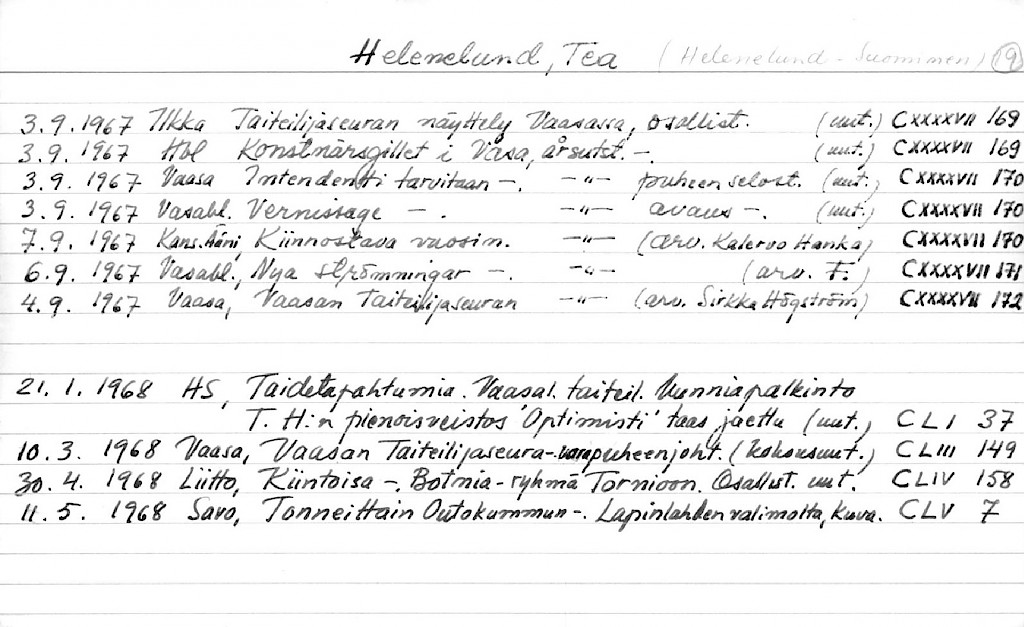 Helenelund, Tea (Helenelund-Suominen) 19
3.9.1967 Ilkka Taiteilijaseuran näyttely Vaasassa, osallist. (uut.) CXXXXVII 169
3.9.1967 Hbl Konstnärsgillet i Vasa, årsutst. –. (uut.) CXXXXVII 169
3.9.1967 Vaasa Intendentti tarvitaan –. –"– puheen selost. (uut.) CXXXXVII 170
3.9.1967 Vasabl. Vernissage –. –"– avaus –. (uut.) CXXXXVII 170
7.9.1967 Kans.Ääni, Kiinnostava vuosin. –"– (arv. Kalervo Hanka) CXXXXVII 170
6.9.1967 Vasabl., Nya strömningar –. –"– (arv. F.) CXXXXVII 171
4.9.1967 Vaasa, Vaasan Taiteilijaseuran –"– (arv. Sirkka Högström) CXXXXVII 172
21.1.1968 HS, Taidetapahtumia. Vaasal. taiteil. kunniapalkinto
T. H:n pienoisveistos 'Optimisti' taas jaettu (uut.) CLI 37
10.3.1968 Vaasa, Vaasan Taiteilijaseura-. varapuheenjoht. (kokousuut.) CLIII 149
30.4.1968 Liitto, Kiintoisa –. Botnia-ryhmä Tornioon. Osallist. uut. CLIV 158
11.5.1968 Savo, Tonneittain Outokummun –. Lapinlahden valimolta, kuva. CLV 7